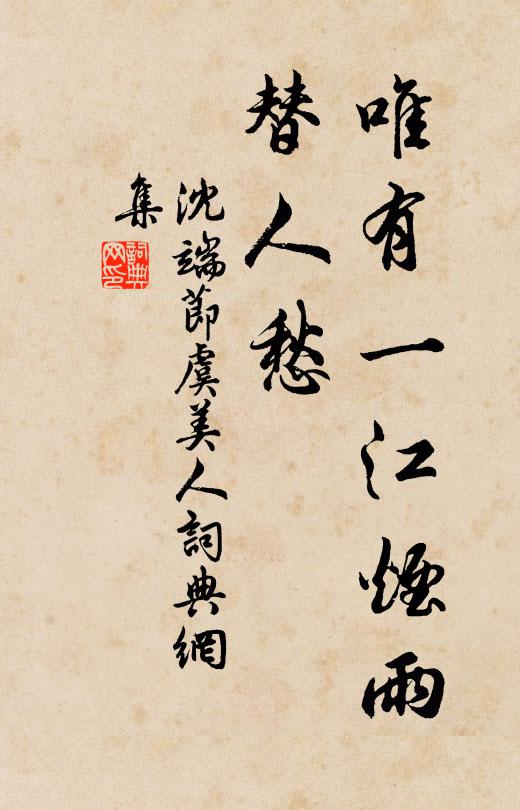 唯有一江煙雨
替人愁
沈端節虞美人詞典網
集
詞典
网印